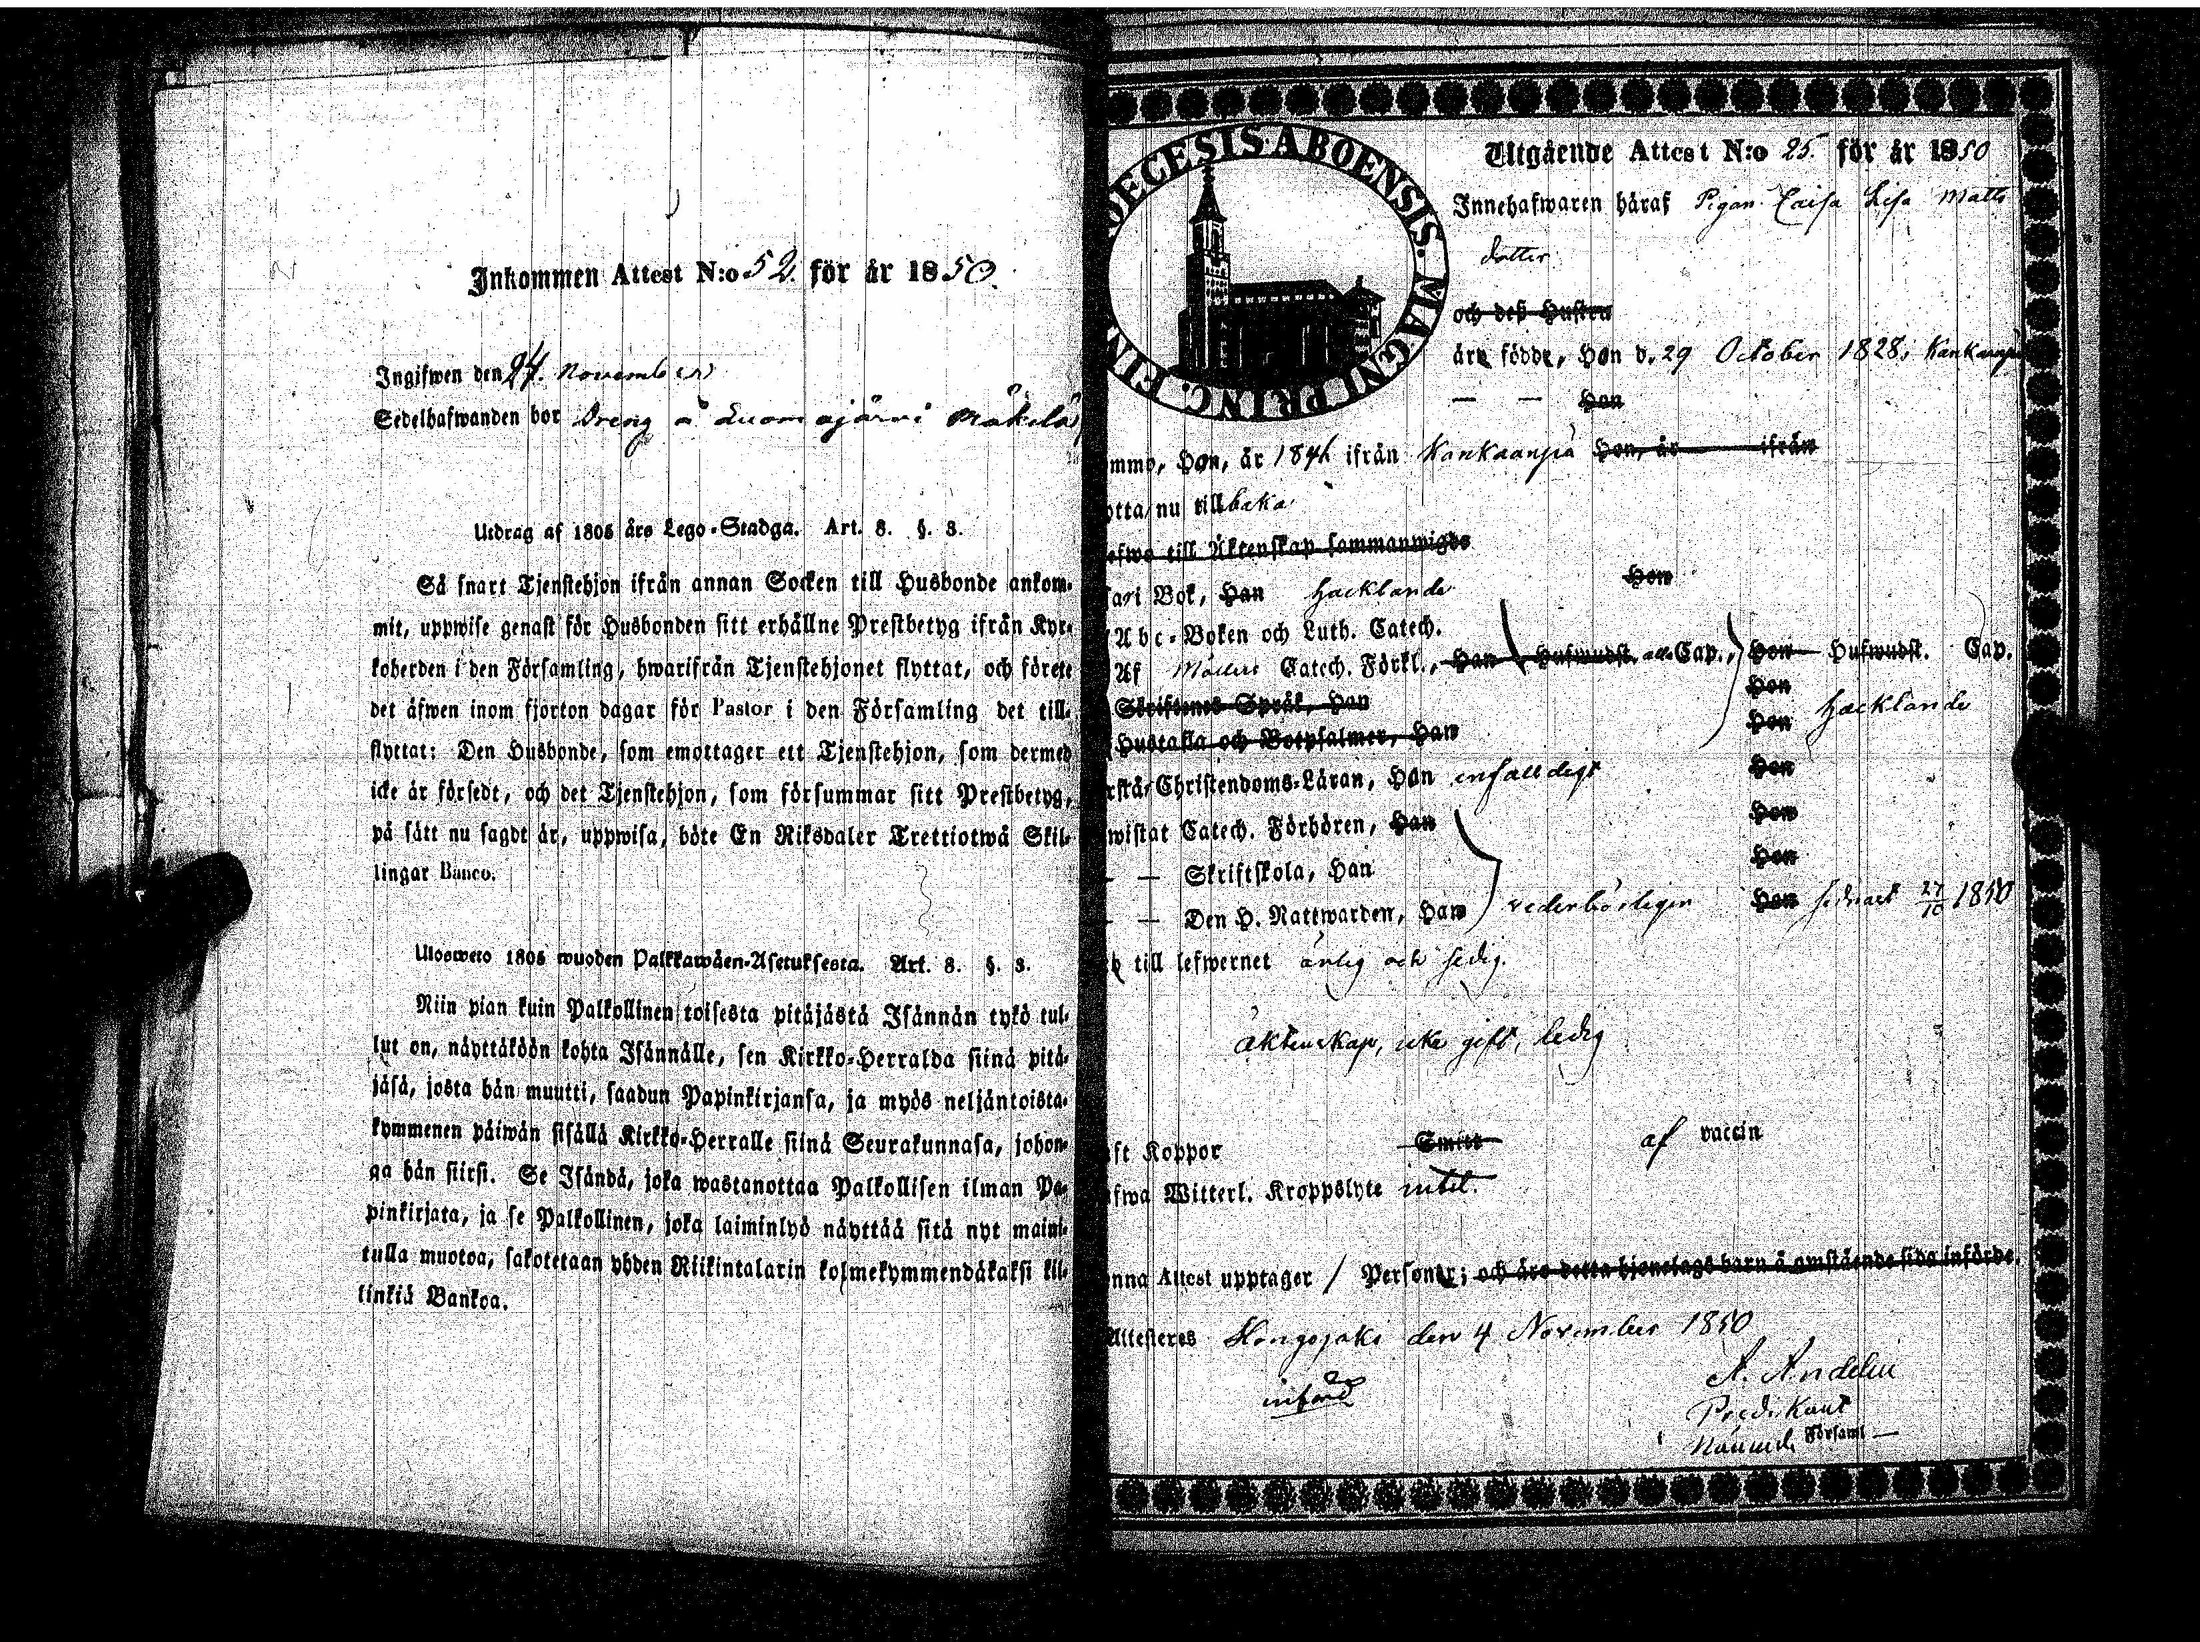 Inkommen Attest N:o 52. för år 1850.
Ingifwen den 24. November
Sedelhafwanden bor Dreng å Luomajärvi Mäkelä
Utdrag af 1805 års Lego-Stadga. Art. 8. §. 3.
Så snart Tjenstehjon ifrån annan Socken till Husbonde ankom-
mit, uppwise genast för Husbonden sitt erhållne Prestbetyg ifrån Kyr-
koherden i den Församling, hwarifrån Tjenstehjonet flyttat, och förete
det äfwen inom fjorton dagar för Pastor i den Församling det till-
flyttat: Den Husbonde, som emottager ett Tjenstehjon, som dermed
icke är försedt, och det Tjenstehjon, som försummar sitt Prestbetyg,
på sätt nu sagdt är, uppwisa, böte En Riksdaler Trettiotwå Skil-
lingar Banco.
Ulosweto 1805 wuoden Palkkawäen-Asetuksesta. Art. 8. §. 3.
Niin pian kuin Palkollinen toisesta pitäjästä Isännän tykö tul-
lut on, näyttäköön kohta Isännälle, sen Kirkko-Herralda siinä pitä-
jäsä, josta hän muutti, saadun Papinkirjansa, ja myös neljäntoista-
kymmenen päiwän sisällä Kirkko-Herralle siinä Seurakunnasa, johon-
ga hän siirsi. Se Isändä, joka wastanottaa Palkollisen ilman Pa-
pinkirjata, ja se Palkollinen, joka laiminlyö näyttää sitä nyt maini-
tulla muotoa, sakotetaan yhden Riikintalarin kolmekymmendäkaksi kil-
linkiä Bankoa.
OECESIS ABOENSIS. MAGNI PRINC. FIN
Utgående Attest N:o 25. för år 1850
Innehafwaren häraf Pigan Caisa Lisa Matts
dotter
och deß Hustru
äro födde, Hon d. 29 October 1828 i Kankaanpä
— — Hon
mmo, Hon, år 1846 ifrån Kankaanpä Hon, år ifrån
otta nu tillbaka
efwo till Äktenskap sammanwigde
ari Bok, Han hacklande Hon
Abc-Boken och Luth. Catech.
Af Catech. Förkl., Han Hufwudst. alla Cap., Hon Hufwudst. Cap.
Skriftenes Språk, Han Hon hacklande
Hustafla och Botpsalmer, Han Hon
rstå Christendoms-Läran, Han enfalldigt Hon
wistat Catech. Förhören, Han Hon
— — Skriftskola, Han Hon
— — Den H. Nattwarden, Han vederbörligen Hon sednast 27/10 1850
till lefwernet ärlig och sedig.
äktenskap, icke gift, ledig
ft Koppor Smitt af vaccin
fwa Witterl. Kroppslyte intet.
nna Attest upptager 1 Personer; och äro detta hjonelags barn å omstående sida införde.
Attesteres Hongojoki den 4 November 1850
införd
A. Andelin
Predikant
i Församl —